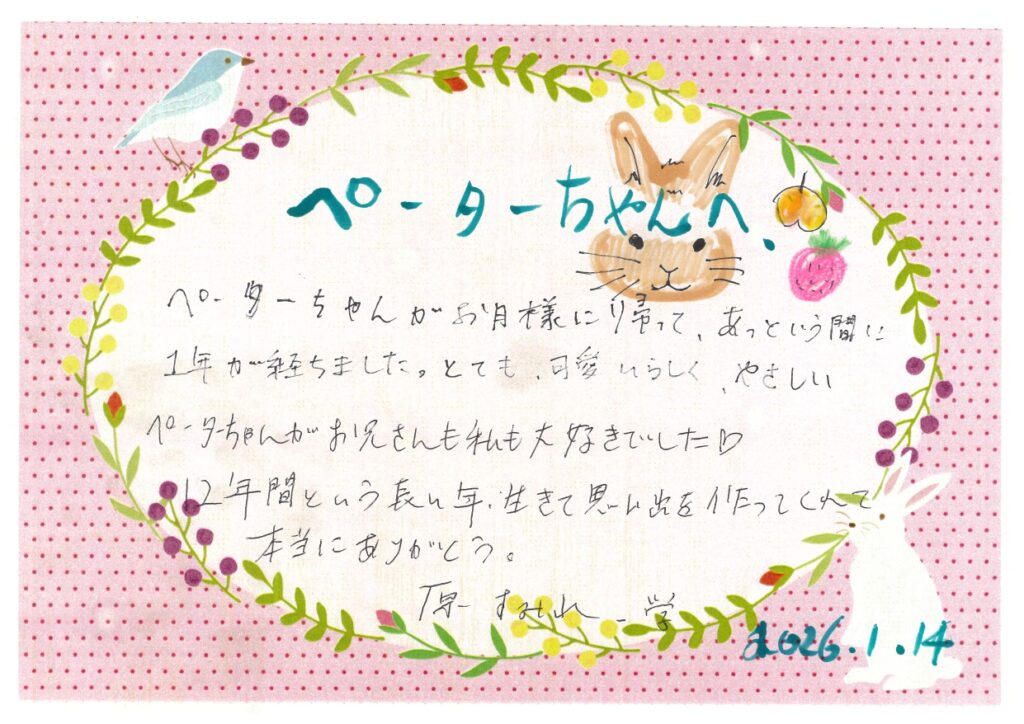 ペーターちゃんへ、
ペーターちゃんがお月様に帰って、あっという間に
1年が経ちました。とても、可愛いらしく、やさしい
ペーターちゃんがお兄さんも私も大好きでした♡
12年間という長い年、生きて思い出を作ってくれて
本当にありがとう。
原 すみれ 学
2026.1.14